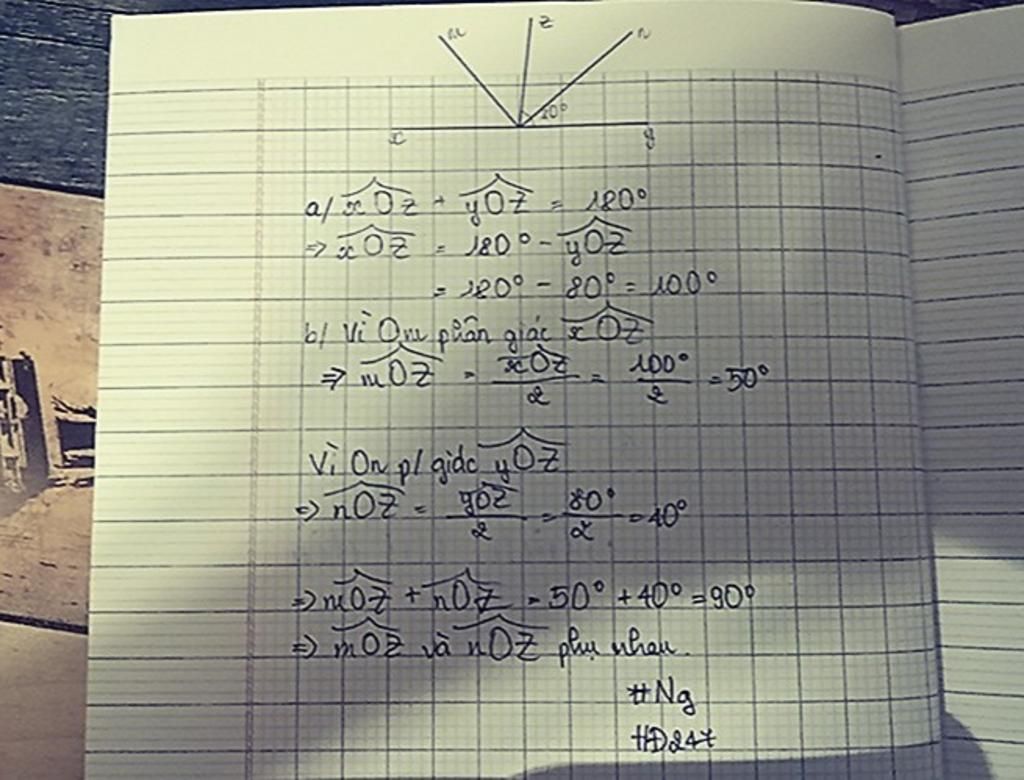 m z n
80°
x y
a/ xÔz + yÔz = 180°
⇒ xÔz = 180° - yÔz
= 180° - 80° = 100°
b/ Vì Om phân giác xÔz
⇒ mÔz = xÔz/2 = 100°/2 = 50°
Vì On p/giác yÔz
⇒ nÔz = yÔz/2 = 80°/2 = 40°
⇒ mÔz + nÔz = 50° + 40° = 90°
⇒ mÔz và nÔz phụ nhau.
#Ng
HD247